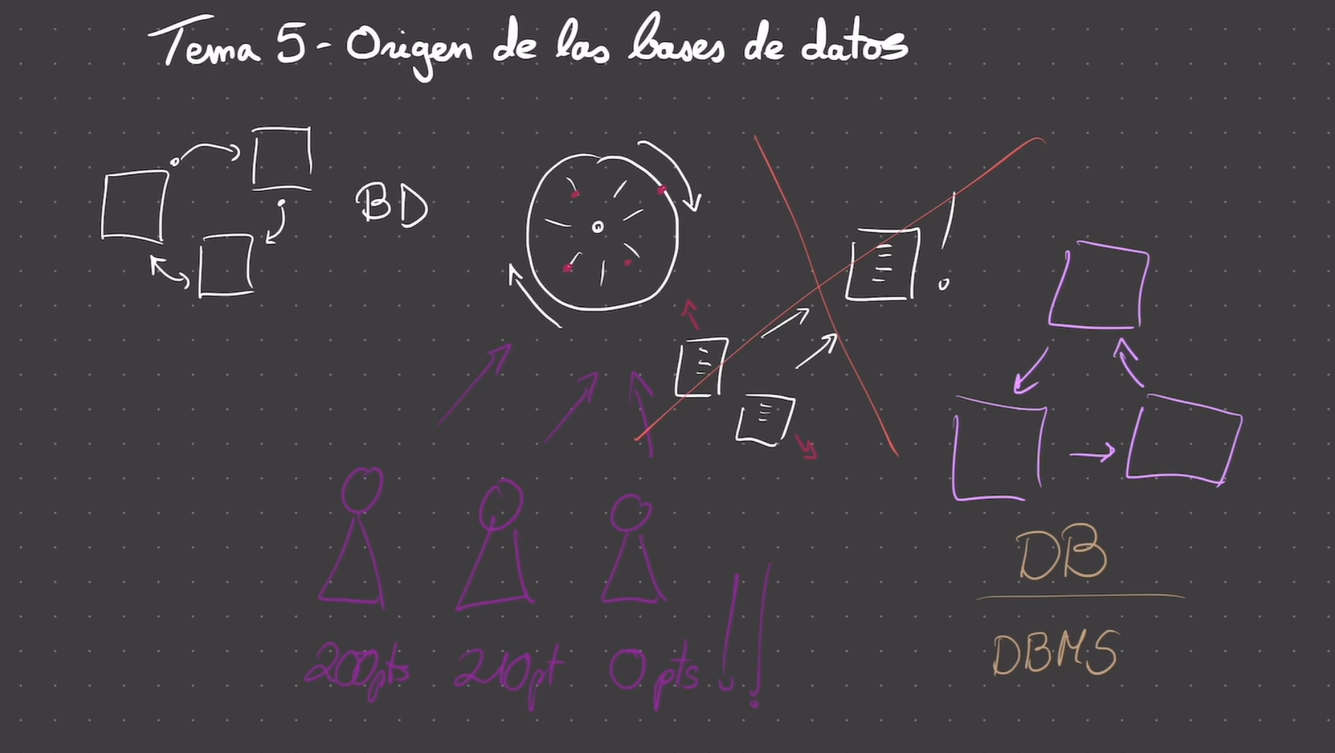 Tema 5 - Origen de las bases de datos
BD
!
200pts 210pt 0 pts !!
DB
DBMS